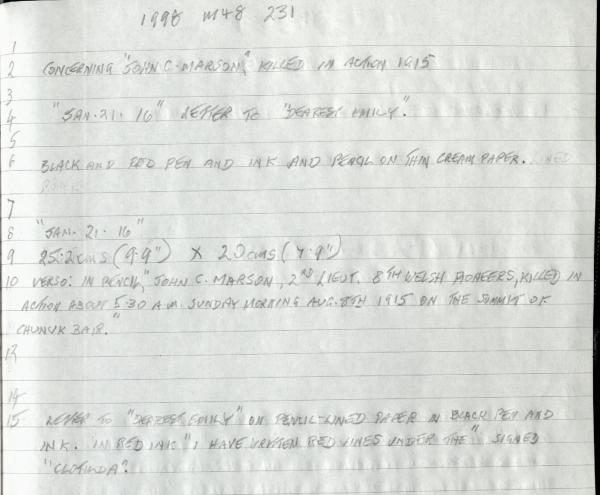 1998 M48 231
1
2 CONCERNING "JOHN C. MARSON," KILLED IN ACTION 1915
3
4 "JAN. 21. 16" LETTER TO "DEAREST EMILY".
5
6 BLACK AND RED PEN AND INK AND PENCIL ON THIN CREAM PAPER.
7
8 "JAN. 21. 16"
9 25.2cms (9.9") x 20cms (7.9")
10 VERSO: IN PENCIL, "JOHN C. MARSON, 2ND LIEUT. 8TH WELSH PIONEERS, KILLED IN
ACTION ABOUT 5.30 A.M. SUNDAY MORNING AUG. 8TH 1915 ON THE SUMMIT OF
CHUNUK BAIR."
13
14
15 LETTER TO "DEAREST EMILY" ON PENCIL-LINED PAPER IN BLACK PEN AND
INK. IN RED INK "I HAVE WRITTEN RED LINES UNDER THE" SIGNED
"CLOTILDA".